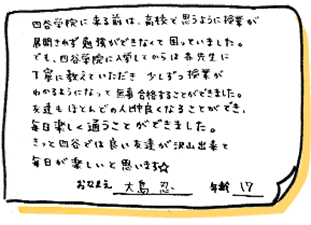 四谷学院に来る前は、高校で思うように授業が
展開されず勉強ができなくて困っていました。
でも、四谷学院に入学してからは各先生に
丁寧に教えていただき 少しずつ授業が
わかるようになって無事合格することができました。
友達もほとんどの人と仲良くなることができ、
毎日楽しく通うことができました。
きっと四谷では良い友達が沢山出来て
毎日が楽しいと思います☆
おなまえ 大島 忍 年齢 17